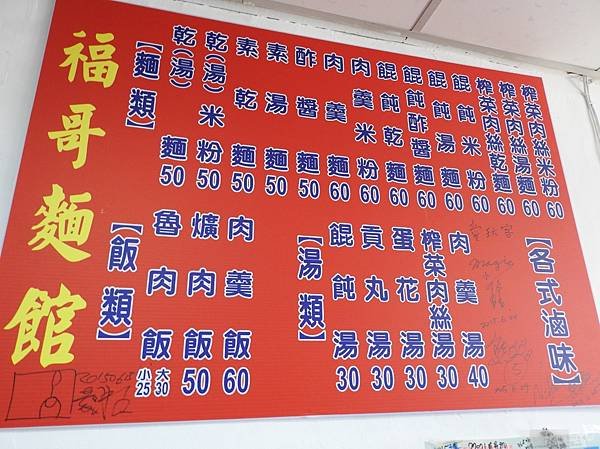 福哥麵館
【麵類】
乾(湯)麵50
乾(湯)米粉50
素乾麵50
素湯麵50
酢醬麵50
肉羹麵60
肉羹米粉60
餛飩乾麵60
餛飩酢醬麵60
餛飩湯麵60
餛飩米粉60
榨菜肉絲乾麵60
榨菜肉絲湯麵60
榨菜肉絲米粉60
【飯類】
魯肉飯小25大30
爌肉飯50
肉羹飯60
【湯類】
餛飩湯30
貢丸湯30
蛋花湯30
榨菜肉絲湯30
肉羹湯40
【各式滷味】